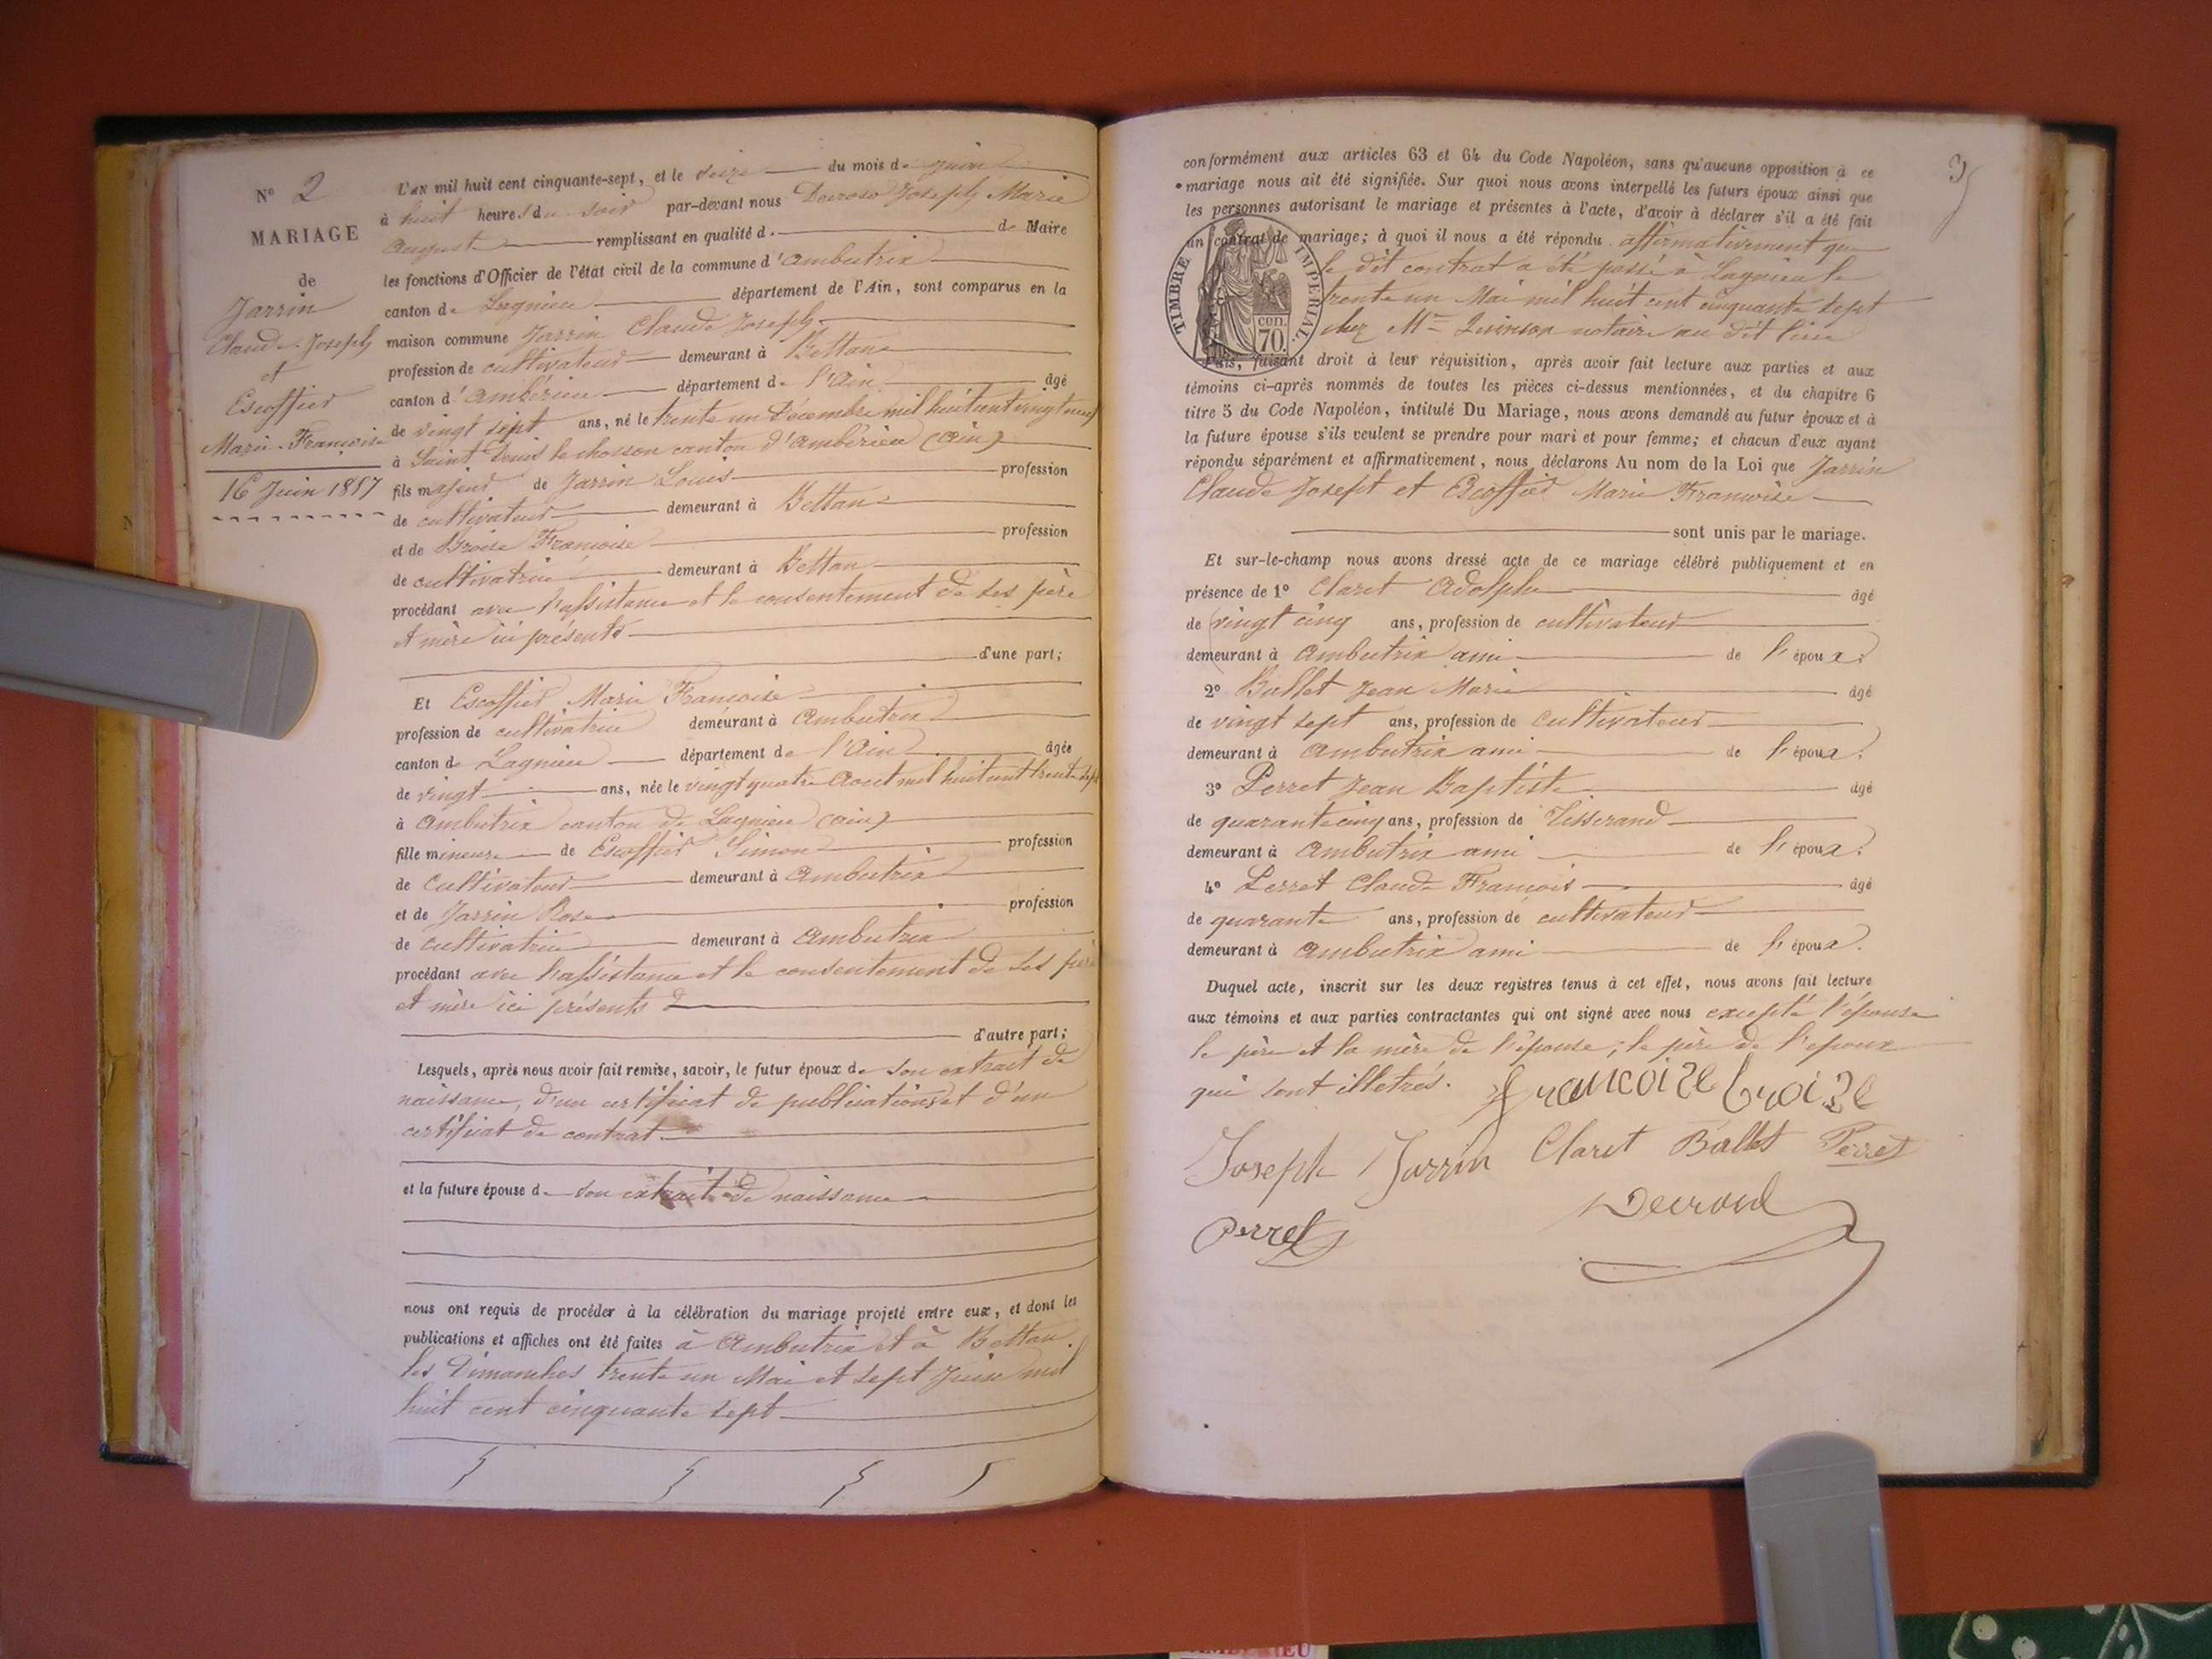 N° 2
MARIAGE
de
Jarrin
Claude-Joseph
et
Escoffier
Marie-Françoise
16 Juin 1857
L'AN mil huit cent cinquante-sept, et le seize du mois de Juin
à huit heures du soir par-devant nous Decroso Joseph Marie
August remplissant en qualité de Maire
les fonctions d'Officier de l'état civil de la commune d'Ambutrix
canton de Lagnieu département de l'Ain, sont comparus en la
maison commune Jarrin Claude Joseph
profession de cultivateur demeurant à Bettan
canton d'Ambérieu département de l'Ain âgé
de vingt sept ans, né le trente un Décembre mil huit cent vingt neuf
à Saint Denis le chosson canton d'Ambérieu (Ain)
fils majeur de Jarrin Louis profession
de cultivateur demeurant à Bettan
et de Broise Françoise profession
de cultivatrice demeurant à Bettan
procédant avec l'assistance et le consentement de ses père
et mère ici présents
d'une part;
Et Escoffier Marie Françoise
profession de cultivatrice demeurant à Ambutrix
canton de Lagnieu département de l'Ain âgée
de vingt ans, née le vingt quatre Aout mil huit cent trente sept
à Ambutrix canton de Lagnieu (Ain)
fille mineure de Escoffier Simon profession
de Cultivateur demeurant à Ambutrix
et de Jarrin Rose profession
de cultivatrice demeurant à Ambutrix
procédant avec l'assistance et le consentement de ses père
et mère ici présents
d'autre part;
Lesquels, après nous avoir fait remise, savoir, le futur époux de son extrait de
naissance, d'un certificat de publications et d'un
certificat de contrat
et la future épouse de son extrait de naissance
nous ont requis de procéder à la célébration du mariage projeté entre eux, et dont les
publications et affiches ont été faites à Ambutrix et à Bettan
les Dimanches trente un Mai et sept Juin mil
huit cent cinquante sept
3
conformément aux articles 63 et 64 du Code Napoléon, sans qu'aucune opposition à ce
mariage nous ait été signifiée. Sur quoi nous avons interpellé les futurs époux ainsi que
les personnes autorisant le mariage et présentes à l'acte, d'avoir à déclarer s'il a été fait
un contrat de mariage; à quoi il nous a été répondu affirmativement que
le dit contrat a été passé à Lagnieu le
trente un Mai mil huit cent cinquante sept
chez Me Quinson notaire au dit lieu
TIMBRE IMPERIAL.
70 cen.
Puis, faisant droit à leur réquisition, après avoir fait lecture aux parties et aux
témoins ci-après nommés de toutes les pièces ci-dessus mentionnées, et du chapitre 6
titre 5 du Code Napoléon, intitulé Du Mariage, nous avons demandé au futur époux et à
la future épouse s'ils veulent se prendre pour mari et pour femme; et chacun d'eux ayant
répondu séparément et affirmativement, nous déclarons Au nom de la Loi que Jarrin
Claude Josept et Escoffier Marie Françoise
sont unis par le mariage.
Et sur-le-champ nous avons dressé acte de ce mariage célébré publiquement et en
présence de 1° Claret Adolphe âgé
de vingt cinq ans, profession de cultivateur
demeurant à Ambutrix ami de l'époux.
2° Ballet Jean Marie âgé
de vingt sept ans, profession de Cultivateur
demeurant à Ambutrix ami de l'époux.
3° Perret Jean Baptiste âgé
de quarante cinq ans, profession de Tisserand
demeurant à Ambutrix ami de l'époux.
4° Perret Claude François âgé
de quarante ans, profession de cultivateur
demeurant à Ambutrix ami de l'époux.
Duquel acte, inscrit sur les deux registres tenus à cet effet, nous avons fait lecture
aux témoins et aux parties contractantes qui ont signé avec nous excepté l'épouse
le père et la mère de l'épouse; le père de l'epoux
qui sont illetrés. francoise broize
Joseph Jarrin Claret Ballet Perret
Perret Decroso